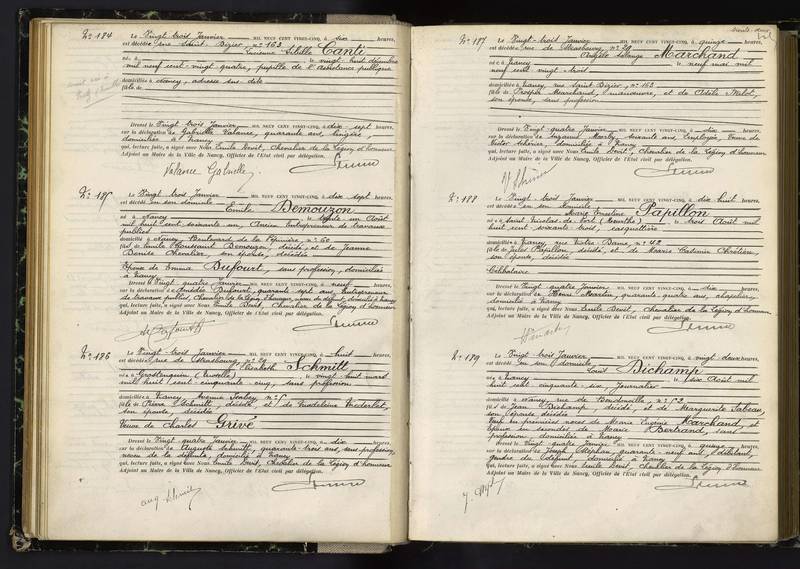 N° 184
Le Vingt-trois Janvier MIL NEUF CENT VINGT-CINQ, à six heures,
est décédée rue Saint Dizier, n° 163
Lucienne Sibille Canti
née à le vingt huit décembre
mil neuf cent vingt-quatre, pupille de l'Assistance publique
domiciliée à Nancy, adresse sus dite
fille de
Dressé le Vingt trois Janvier MIL NEUF CENT VINGT-CINQ, à dix-sept heures,
sur la déclaration de Gabrielle Valance, quarante ans, lingère,
domiciliée à Nancy
qui, lecture faite, a signé avec Nous Emile Devit, Chevalier de la Légion d'honneur
Adjoint au Maire de la Ville de Nancy, Officier de l'Etat civil par délégation.
Valance Gabrielle
N° 185
Le Vingt trois Janvier MIL NEUF CENT VINGT-CINQ, à dix sept heures,
est décédé en son domicile
Emile Demouzon
né à Nancy le trente un Août
mil huit cent soixante un, Ancien Entrepreneur de travaux
publics
domicilié à Nancy, Boulevard de la Pépinière, n° 60
fils de Emile Toussaint Demouzon, décédé, et de Jeanne
Denise Chevalier, son épouse, décédée
Epoux de Emma Dufourt, sans profession, domiciliée
à Nancy
Dressé le Vingt quatre Janvier MIL NEUF CENT VINGT-CINQ, à neuf heures,
sur la déclaration de Amédée Dufourt, quarante sept ans, Entrepreneur
de travaux publics, Chevalier de la Légion d'honneur, neveu du défunt, domicilié à Nancy
qui, lecture faite, a signé avec Nous Emile Devit, Chevalier de la Légion d'honneur
Adjoint au Maire de la Ville de Nancy, Officier de l'Etat civil par délégation.
N° 186
Le Vingt-trois Janvier MIL NEUF CENT VINGT-CINQ, à huit heures,
est décédée rue de Strasbourg, n° 29
Elisabeth Schmitt
née à Grostenquin (Moselle) le vingt huit mars
mil huit cent cinquante-cinq, sans profession
domiciliée à Nancy, Avenue Isabey, n°
fille de Pierre Schmitt, décédé, et de Madeleine Niederlet,
son épouse, décédée
Veuve de Charles Grivé
Dressé le Vingt quatre Janvier MIL NEUF CENT VINGT-CINQ, à dix heures,
sur la déclaration de Auguste Schmitt, quarante-trois ans, sans profession,
neveu de la défunte, domicilié à Nancy
qui, lecture faite, a signé avec Nous Emile Devit, Chevalier de la Légion d'honneur
Adjoint au Maire de la Ville de Nancy, Officier de l'Etat civil par délégation.
Aug. Schmitt
trente-deux
N° 187
Le Vingt-trois Janvier MIL NEUF CENT VINGT-CINQ, à quinze heures,
est décédé rue de Strasbourg, n° 29
Marchand
né à Nancy le neuf mai mil
neuf cent vingt-trois
domicilié à Nancy, rue Saint Dizier, n° 163
fils de Prosper Marchand, manœuvre, et de Adèle
son épouse, sans profession
Dressé le Vingt quatre Janvier MIL NEUF CENT VINGT-CINQ, à dix heures,
sur la déclaration de Suzanne Marly, soixante ans, Employée, Veuve de
Victor domiciliée à Nancy
qui, lecture faite, a signé avec Nous Emile Devit, Chevalier de la Légion d'honneur
Adjoint au Maire de la Ville de Nancy, Officier de l'Etat civil par délégation.
N° 188
Le Vingt trois Janvier MIL NEUF CENT VINGT-CINQ, à dix huit heures,
est décédée en son domicile
Marie Ernestine Papillon
née à Saint Nicolas de Port (Meurthe) le trois Août mil
huit cent soixante-trois, casquettière
domiciliée à Nancy, rue Notre-Dame, n° 42
fille de Jules Papillon, décédé, et de Marie Catherine Chrétien,
son épouse, décédée
Célibataire
Dressé le Vingt quatre Janvier MIL NEUF CENT VINGT-CINQ, à dix heures,
sur la déclaration de Henri quarante-quatre ans, chapelier,
domicilié à Nancy
qui, lecture faite, a signé avec Nous Emile Devit, Chevalier de la Légion d'honneur
Adjoint au Maire de la Ville de Nancy, Officier de l'Etat civil par délégation.
N° 189
Le Vingt-trois Janvier MIL NEUF CENT VINGT-CINQ, à vingt-deux heures,
est décédé en son domicile
Louis Bichamp
né à Nancy le six Août mil
huit cent cinquante-six, Journalier
domicilié à Nancy, rue de Boudonville, n° 52
fils de Jean Bichamp, décédé, et de Marguerite Sabeau,
son épouse décédée
Veuf en premières noces de Marie Eugénie Marchand, et
Epoux en secondes de Marie Bertrand, sans
profession, domiciliée à Nancy
Dressé le Vingt quatre Janvier MIL NEUF CENT VINGT-CINQ, à quinze heures,
sur la déclaration de Joseph Stéphan, quarante-neuf ans, débitant,
gendre du défunt, domicilié à Nancy
qui, lecture faite, a signé avec Nous Emile Devit, Chevalier de la Légion d'honneur
Adjoint au Maire de la Ville de Nancy, Officier de l'Etat civil par délégation.